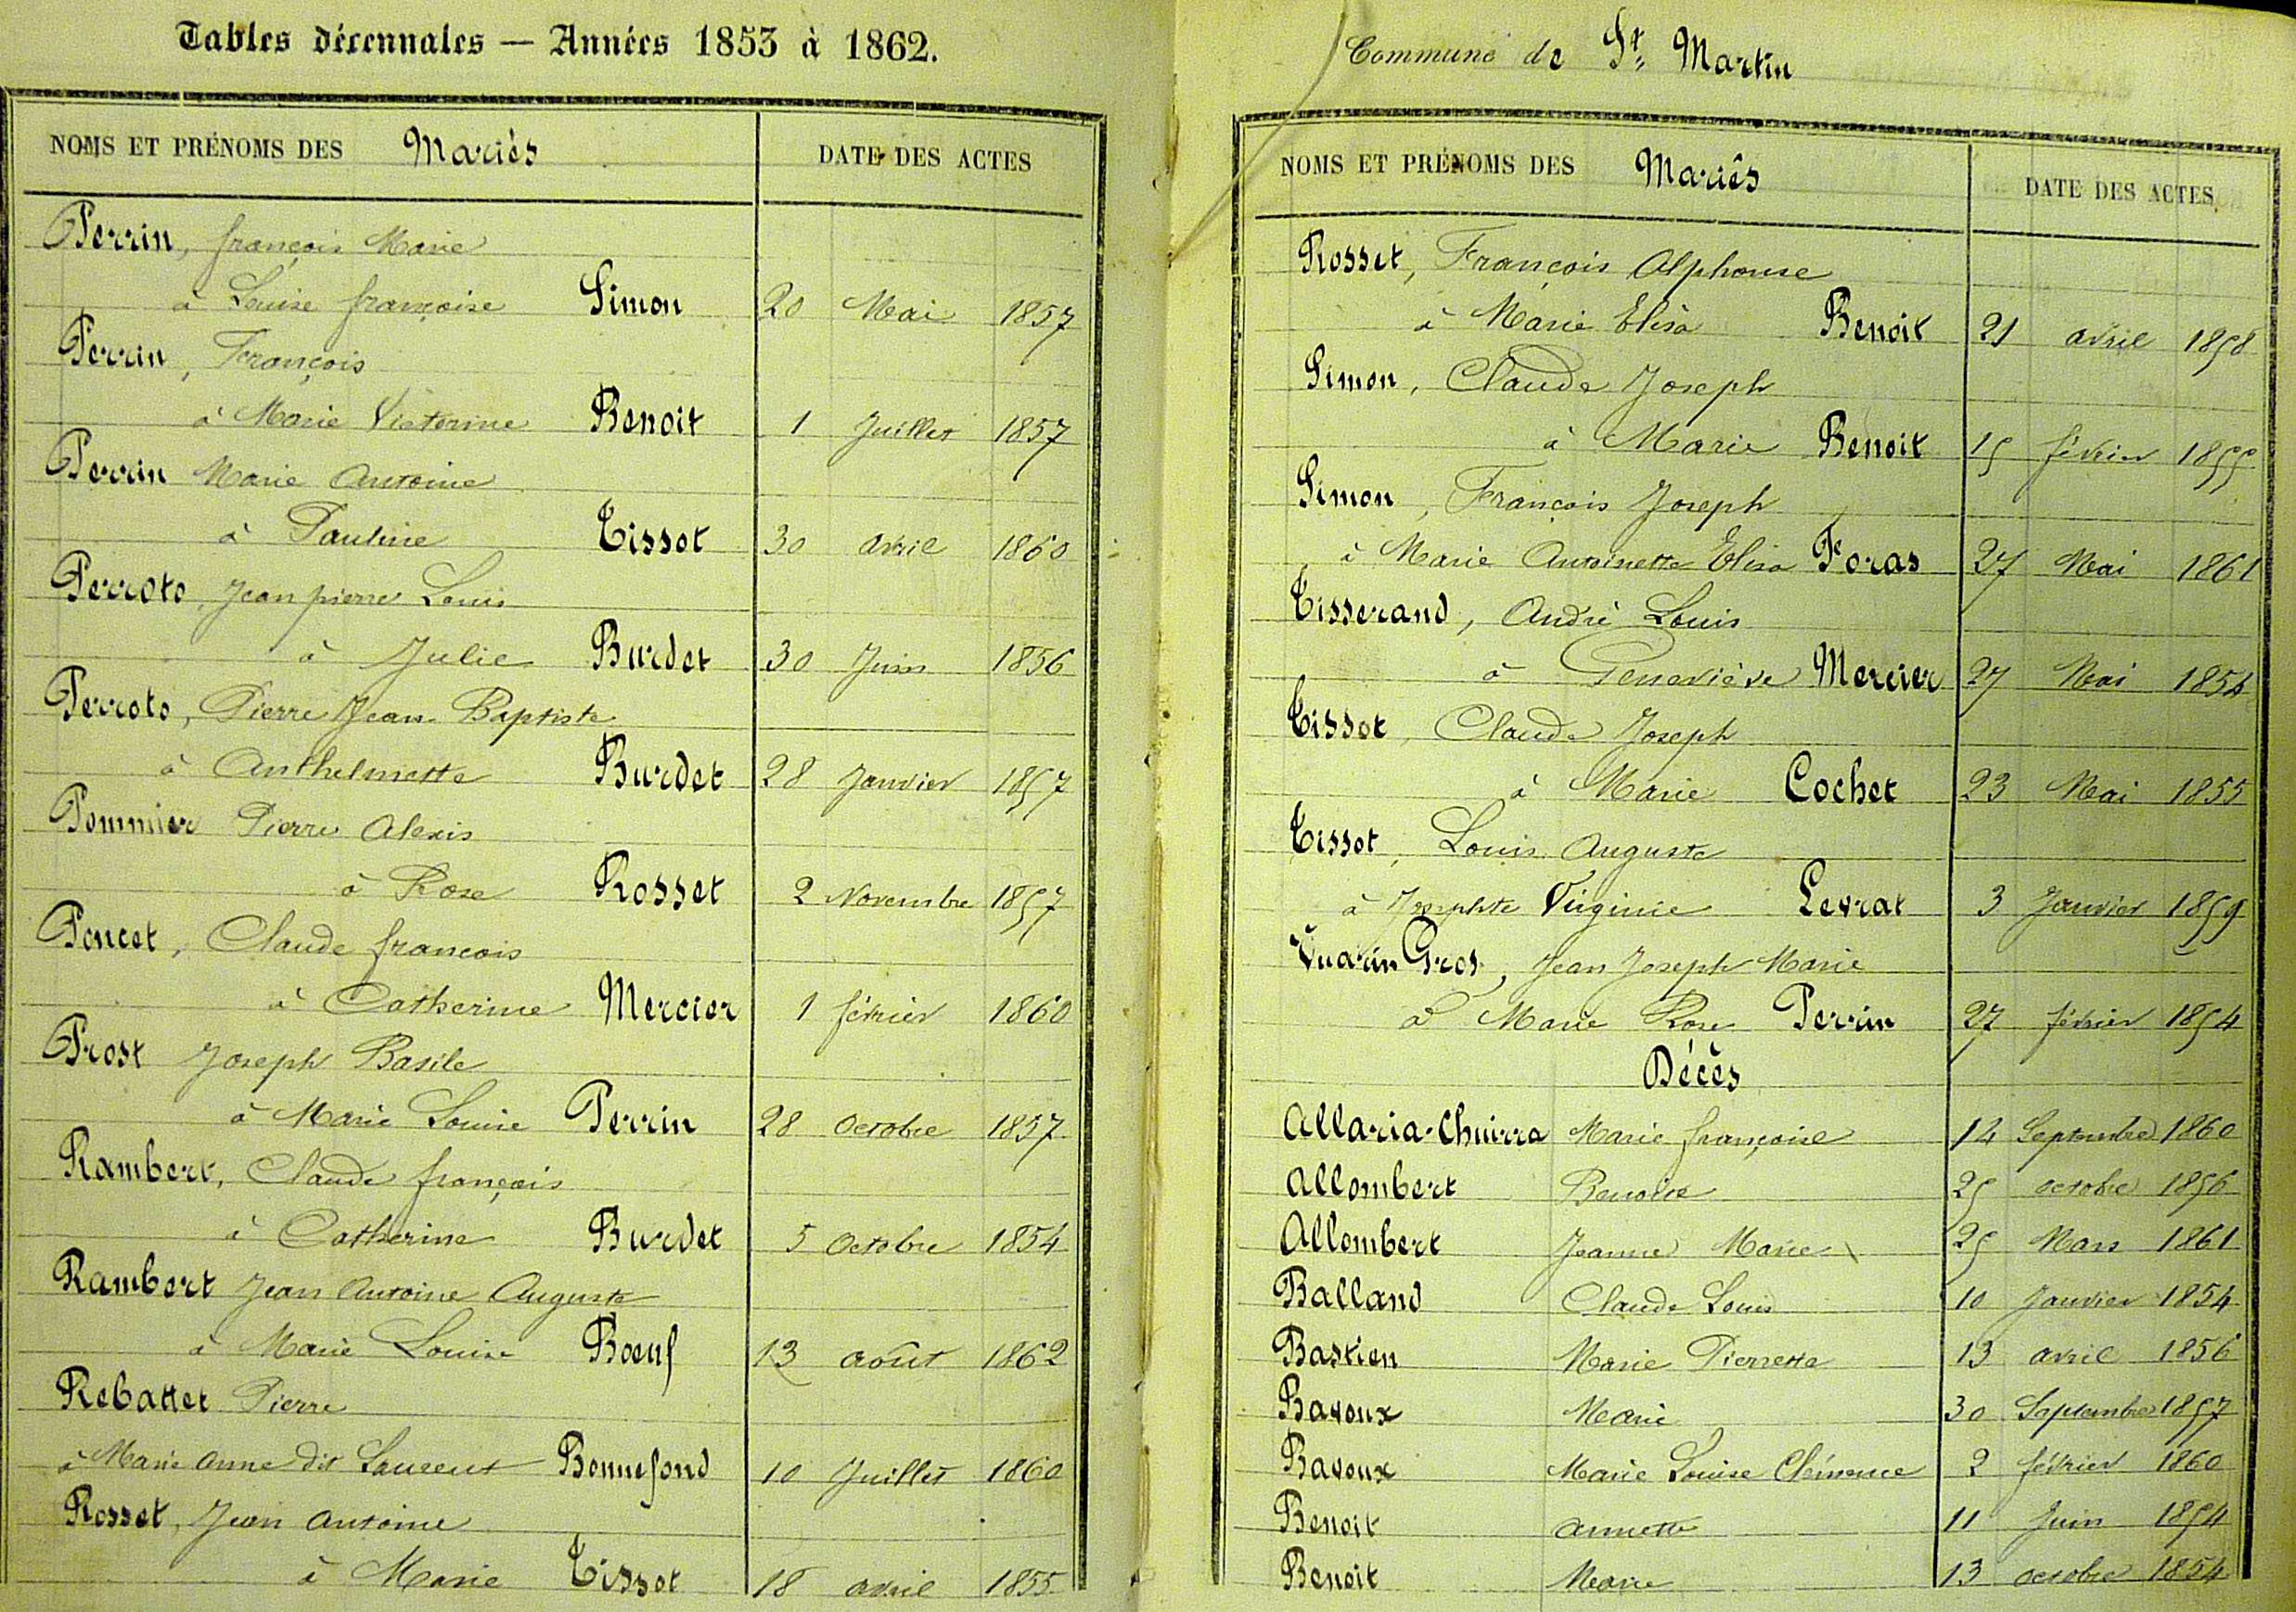 Tables décennales — Années 1853 à 1862.
NOMS ET PRÉNOMS DES Mariés DATE DES ACTES
Perrin, françois Marie
à Louise françoise Simon 20 Mai 1857
Perrin, François
à Marie Victorine Benoit 1 Juillet 1857
Perrin Marie Antoine
à Pauline Tissot 30 avril 1860
Perroto, Jean pierre Louis
à Julie Burdet 30 Juin 1856
Perroto, Pierre Jean Baptiste
à Anthelmette Burdet 28 Janvier 1857
Pommier Pierre Alexis
à Rose Rosset 2 Novembre 1857
Poncet, Claude françois
à Catherine Mercier 1 février 1860
Prost Joseph Basile
à Marie Louise Perrin 28 Octobre 1857
Rambert, Claude françois
à Catherine Burdet 5 Octobre 1854
Rambert Jean Antoine Auguste
à Marie Louise Boeuf 13 août 1862
Rebattet Pierre
à Marie Anne dit Laurent Bonnefond 10 Juillet 1860
Rosset, Jean Antoine
à Marie Tissot 18 avril 1855
Commune de St. Martin
NOMS ET PRÉNOMS DES Mariés DATE DES ACTES
Rosset, François Alphonse
à Marie Elisa Benoit 21 avril 1858
Simon, Claude Joseph
à Marie Benoit 15 février 1855
Simon, François Joseph
à Marie Antoinette Elisa Foras 27 Mai 1861
Tisserand, André Louis
à Geneviève Mercier 27 Mai 1854
Tissot, Claude Joseph
à Marie Cochet 23 Mai 1855
Tissot, Louis Auguste
à Josephte Virginie Levrat 3 Janvier 1859
Vuarin Gros, Jean Joseph Marie
à Marie Rose Perrin 27 février 1854
Décès
Allaria-Chuirra Marie françoise 14 Septembre 1860
Allombert Benoite 25 octobre 1856
Allombert Jeanne Marie 25 Mars 1861
Balland Claude Louis 10 Janvier 1854
Bastien Marie Pierrette 13 avril 1856
Bavoux Marie 30 Septembre 1857
Bavoux Marie Louise Clémence 2 février 1860
Benoit annette 11 Juin 1854
Benoit Marie 13 octobre 1854